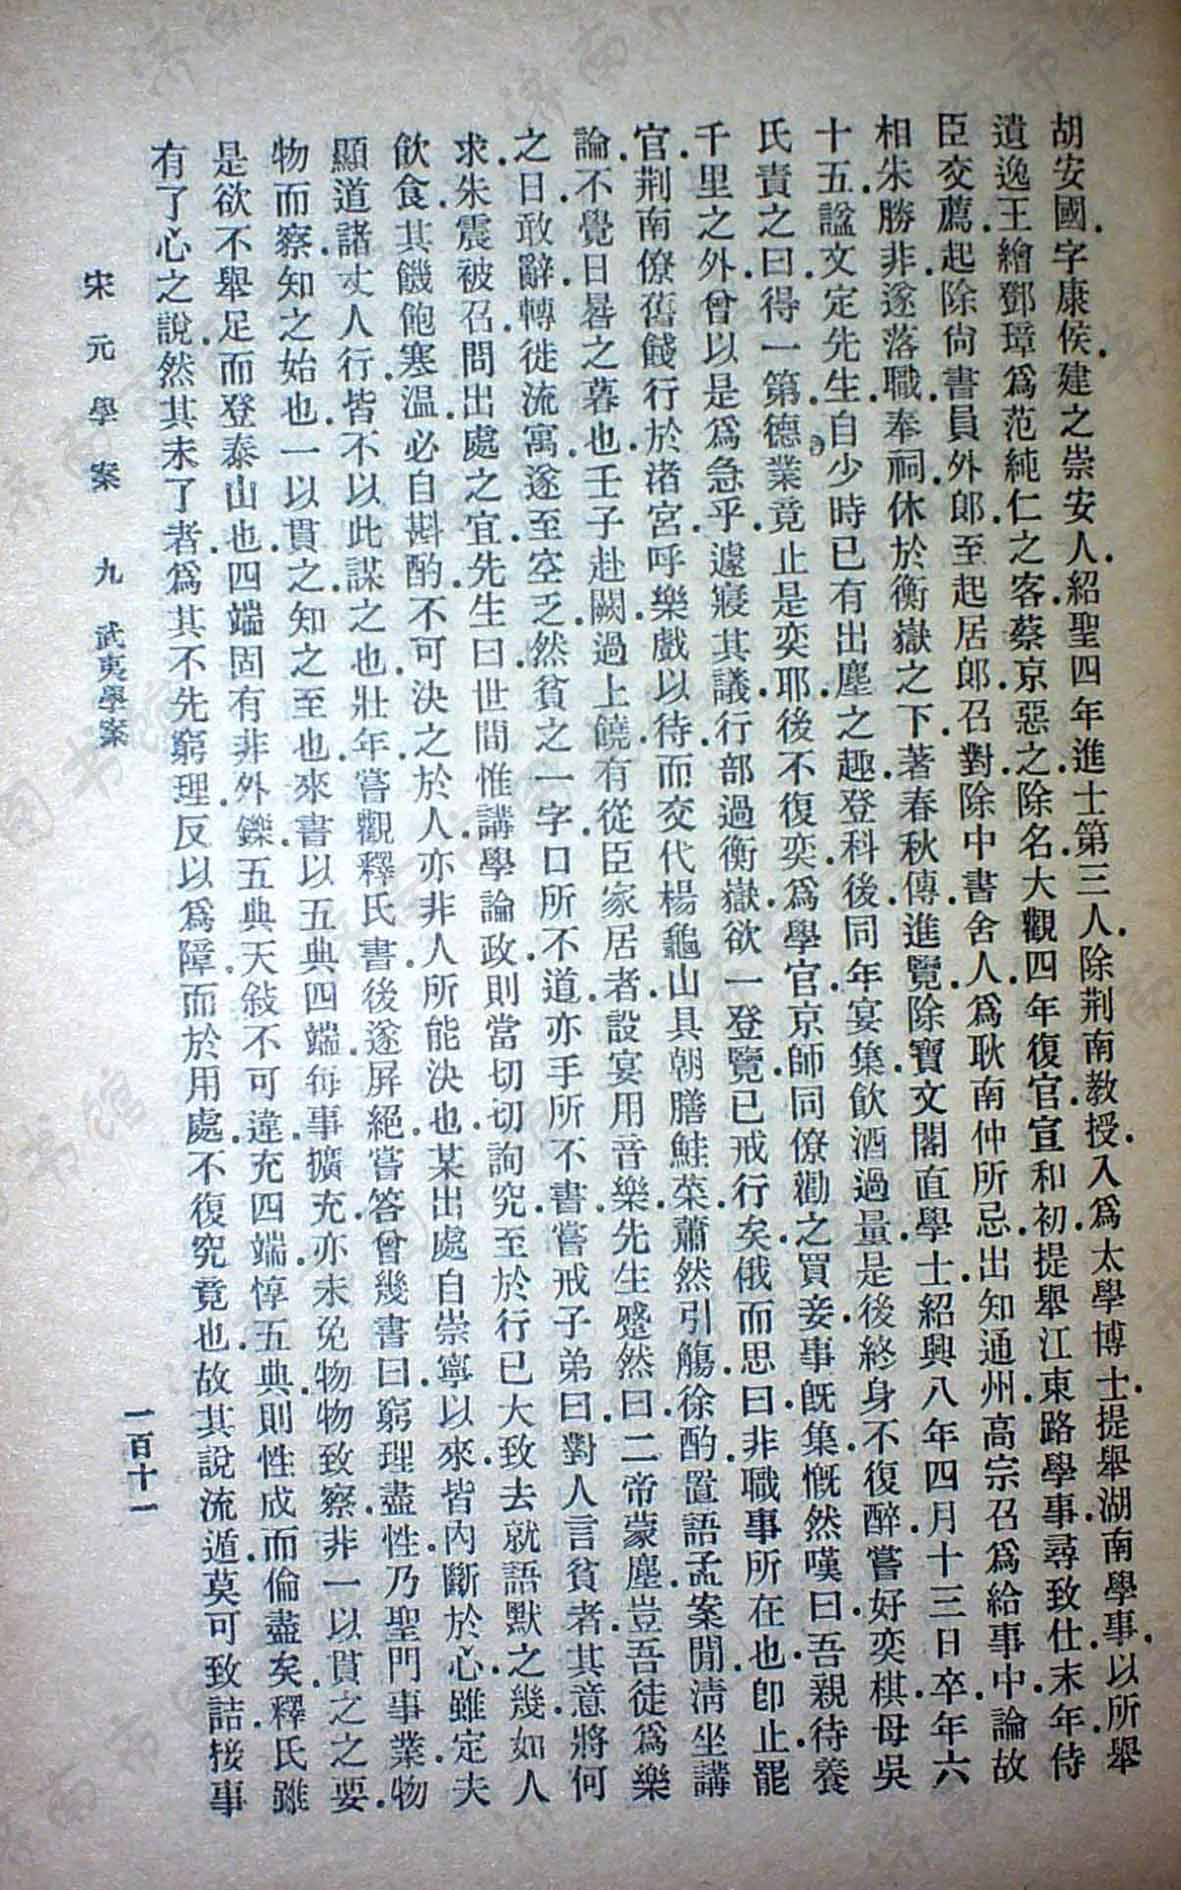 胡安國．字康侯．建之崇安人．紹聖四年進士第三人．除荆南教授．入爲太學博士．提舉湖南學事．以所舉
遺逸王繪鄧璋爲范純仁之客．蔡京惡之．除名．大觀四年復官．宣和初．提舉江東路學事．尋致仕．末年．侍
臣交薦．起除尙書員外郎．至起居郎．召對．除中書舍人．爲耿南仲所忌．出知通州．高宗召爲給事中．論故
相朱勝非．遂落職．奉祠．休於衡嶽之下．著春秋傳．進覽．除寶文閣直學士．紹興八年四月十三日卒．年六
十五．諡文定．先生自少時已有出塵之趣．登科後．同年宴集．飮酒過量．是後終身不復醉．嘗好奕棋．母吳
氏責之曰．得一第．德業竟止是奕耶．後不復奕．爲學官京師．同僚勸之買妾．事旣集．慨然嘆曰．吾親待養
千里之外．曾以是爲急乎．遽寢其議．行部過衡嶽．欲一登覽．已戒行矣．俄而思曰．非職事所在也．卽止．罷
官．荆南僚舊餞行於渚宮．呼樂戲以待．而交代楊龜山具朝膳．鮭菜蕭然．引觴徐酌．置語孟案閒．淸坐講
論．不覺日晷之暮也．壬子赴闕．過上饒．有從臣家居者．設宴用音樂．先生蹙然曰．二帝蒙塵．豈吾徒爲樂
之日．敢辭．轉徙流寓．遂至空乏．然貧之一字．口所不道．亦手所不書．嘗戒子弟曰．對人言貧者．其意將何
求．朱震被召．問出處之宜．先生曰．世間惟講學論政．則當切切詢究．至於行己大致．去就語默之幾．如人
飮食．其饑飽寒溫．必自斟酌．不可決之於人．亦非人所能決也．某出處自崇寧以來．皆內斷於心．雖定夫
顯道諸丈人行．皆不以此謀之也．壯年嘗觀釋氏書．後遂屏絕．嘗答曾幾書曰．窮理盡性．乃聖門事業．物
物而察．知之始也．一以貫之．知之至也．來書以五典四端．每事擴充．亦未免物物致察．非一以貫之之要．
是欲不舉足而登泰山也．四端固有．非外鑠．五典天敍．不可違．充四端．惇五典．則性成而倫盡矣．釋氏雖
有了心之說．然其未了者．爲其不先窮理．反以爲障．而於用處．不復究竟也．故其說流遁．莫可致詰．接事
宋元學案　九　武夷學案
一百十一